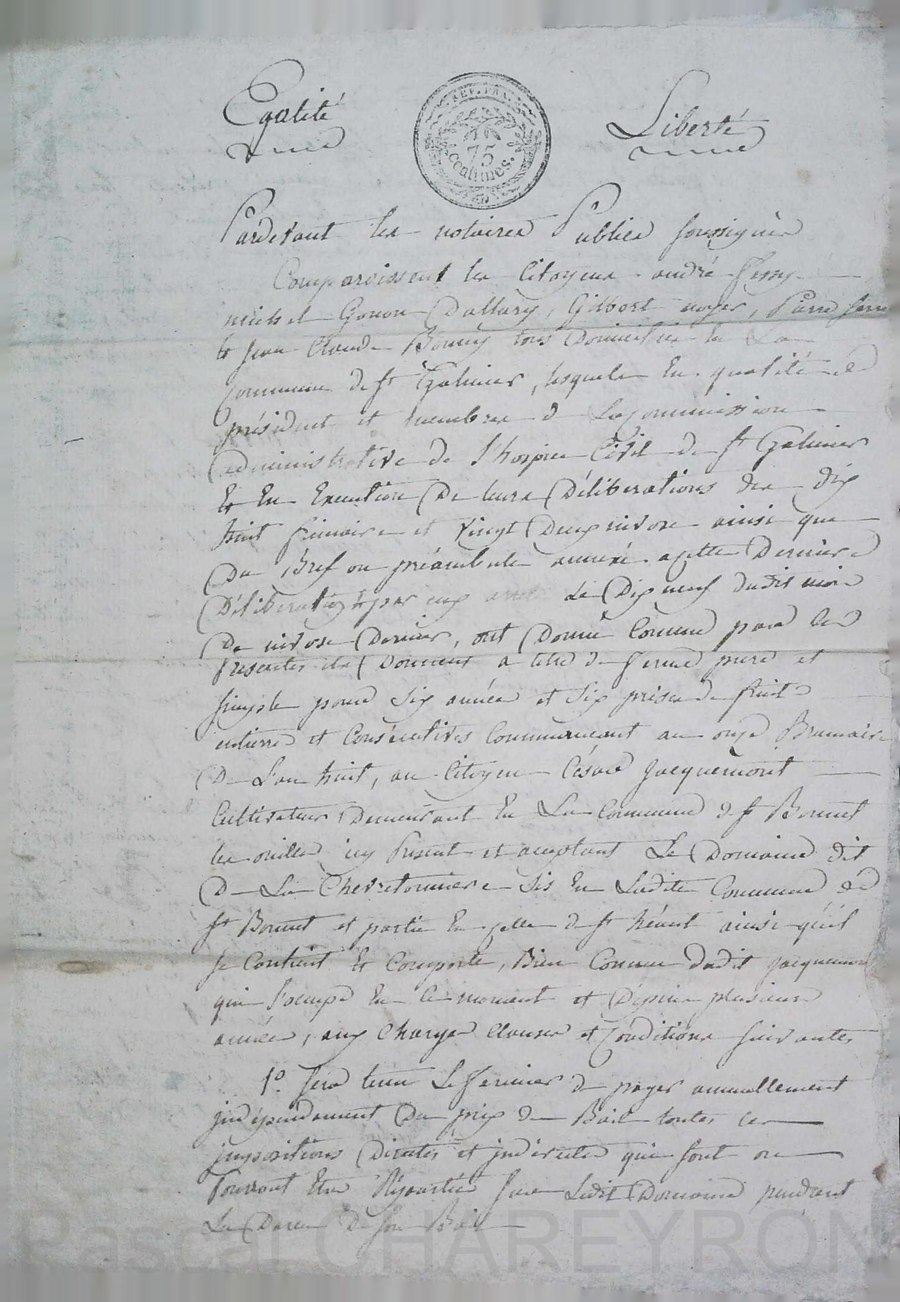 Egalité Liberté
REP. FRA.
75
centimes.
Pardevant les notaires Publics soussignés
Comparoissent les Citoyens andré fessy
michel Gonon Dallary, Gilbert noyer, Pierre
& Jean Claude Bonny tous Domiciliés en La
Commune de St Galmier, lesquels en qualité de
président et membres de La Commission
administrative de l'hospice Civil de St Galmier
Et En Execution De leurs Déliberations des Dix
huit frimaire et vingt Deux nivose ainsi que
Du Bref ou préambule annexé a cette Derniere
Déliberation par eux Le Dix neuf dudit mois
De nivose Dernier, ont Donné Comme par les
Presentes ils Donnent a titre de ferme pure et
simple pour Six années et Six prises de fruits
entieres et Consécutives Commencant au onze Brumaire
De L'an huit, au Citoyen César Jacquemont
Cultivateur Demeurant En La Commune de St Bonnet
les oulles icy Present et acceptant Le Domaine dit
De La Chevretonniere Sis En Ladite Commune de
St Bonnet et partie En celle de St héant ainsi qu'il
se Contient Et Comporte, Bien Connu dudit Jacquemont
qui l'occupe En Ce moment et Depuis plusieurs
années, aux Charges Clauses et Conditions suivantes
1o. Sera tenu Le fermier de payer annuellement
indépendament Du prix du Bail toutes les
impositions Directes et indirectes qui sont ou
Pourront Etre Réparties sur Ledit Domaine pendant
La Durée de son Bail
Pascal CHAREYRON